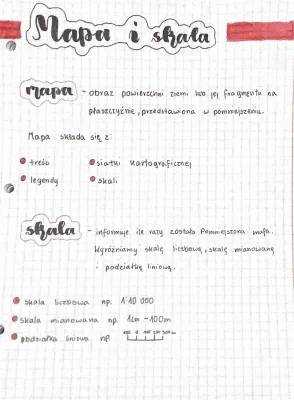 Mapa i skala
mapa - obraz powierzchni ziemi lub jej fragmentu na
płaszczyźnie, przedstawiona w pomniejszeniu.
Mapa składa się z:
• treść • siatki kartograficznej
• legendy • skali
skala - informuje ile razy została Pomniejszona mapa.
Wyróżniamy skalę liczbową, skalę mianowaną
i podziałkę liniową.
• skala liczbowa np. 1:10 000
• skala mianowana np. 1cm - 100m
• podziałka liniowa np